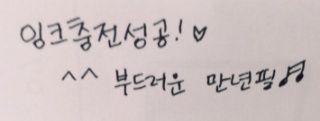 잉크충전성공!♡
^^ 부드러운 만년필♬